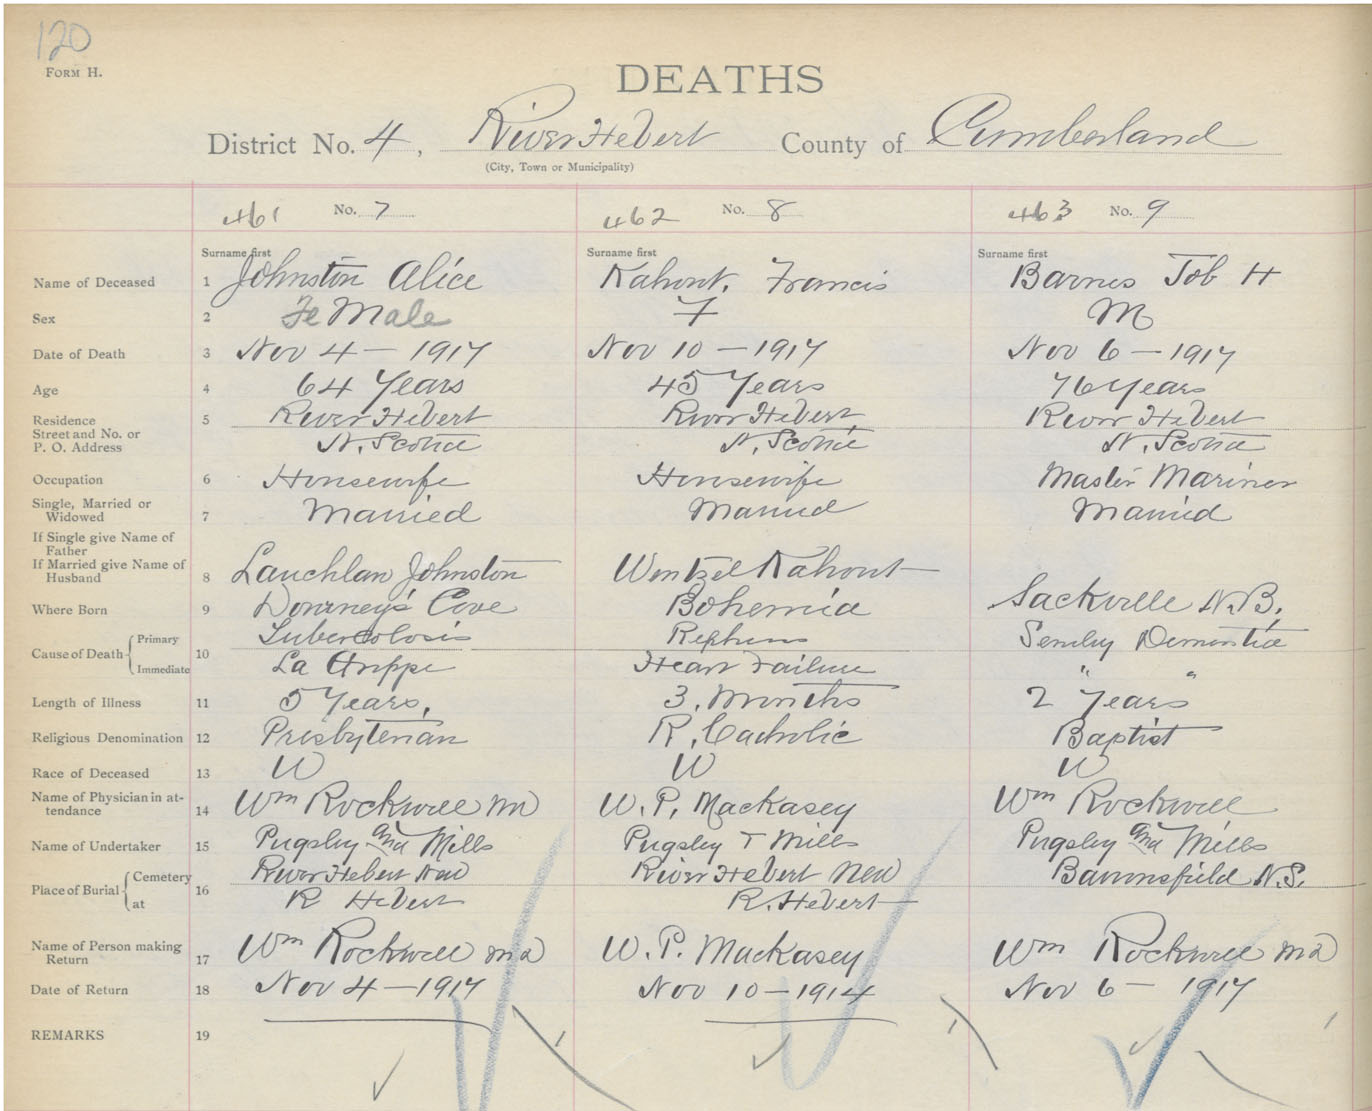 120
FORM H.
DEATHS
District No. 4, River Hebert County of Cumberland
(City, Town or Municipality)
461 No. 7 462 No. 8 463 No. 9
Surname first Surname first Surname first
Name of Deceased 1 Johnston Alice Kahont, Francis Barnes Job H
Sex 2 FeMale F M
Date of Death 3 Nov 4 - 1917 Nov 10 - 1917 Nov 6 - 1917
Age 4 64 Years 45 Years 76 Years
Residence 5 River Hebert River Hebert River Hebert
Street and No. or
P. O. Address N. Scotia N. Scotia N. Scotia
Occupation 6 Housewife Housewife Master Mariner
Single, Married or
Widowed 7 Married Married Married
If Single give Name of
Father
If Married give Name of
Husband 8 Lauchlan Johnston Wentzel Kahont
Where Born 9 Downey's Cove Bohemia Sackville N.B.
Cause of Death 10 Primary Tubercolosis Seniley Dementia
Immediate La Grippe Heart Failure " "
Length of Illness 11 5 Years, 3. Months 2 Years
Religious Denomination 12 Presbyterian R. Catholic Baptist
Race of Deceased 13 W W W
Name of Physician in at-
tendance 14 Wm Rockwell MD W. P. Mackasey Wm Rockwell
Name of Undertaker 15 Pugsley and Mills Pugsley + Mills Pugsley and Mills
Place of Burial 16 Cemetery River Hebert New River Hebert New N.S.
at R Hebert R. Hebert
Name of Person making
Return 17 Wm Rockwell MD W. P. Mackasey Wm Rockwell MD
Date of Return 18 Nov 4 - 1917 Nov 10 - 1914 Nov 6 - 1917
REMARKS 19